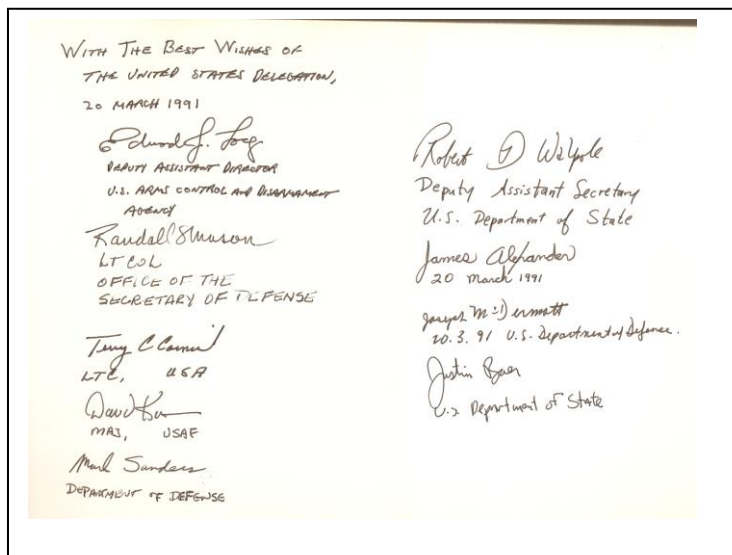 WITH THE BEST WISHES OF
THE UNITED STATES DELEGATION,
20 MARCH 1991
Edward J.
DEPUTY ASSISTANT DIRECTOR
U.S. ARMS CONTROL AND DISARMAMENT
AGENCY
Randall
LT COL
OFFICE OF THE
SECRETARY OF DEFENSE
Terry C
LTC, USA
David
MAJ, USAF
Mark Sanders
DEPARTMENT OF DEFENSE
Robert D Walpole
Deputy Assistant Secretary
U.S. Department of State
James Alexander
20 March 1991
Joseph McDermott
20.3.91 U.S. Department of Defence.
Justin
U.S Department of State